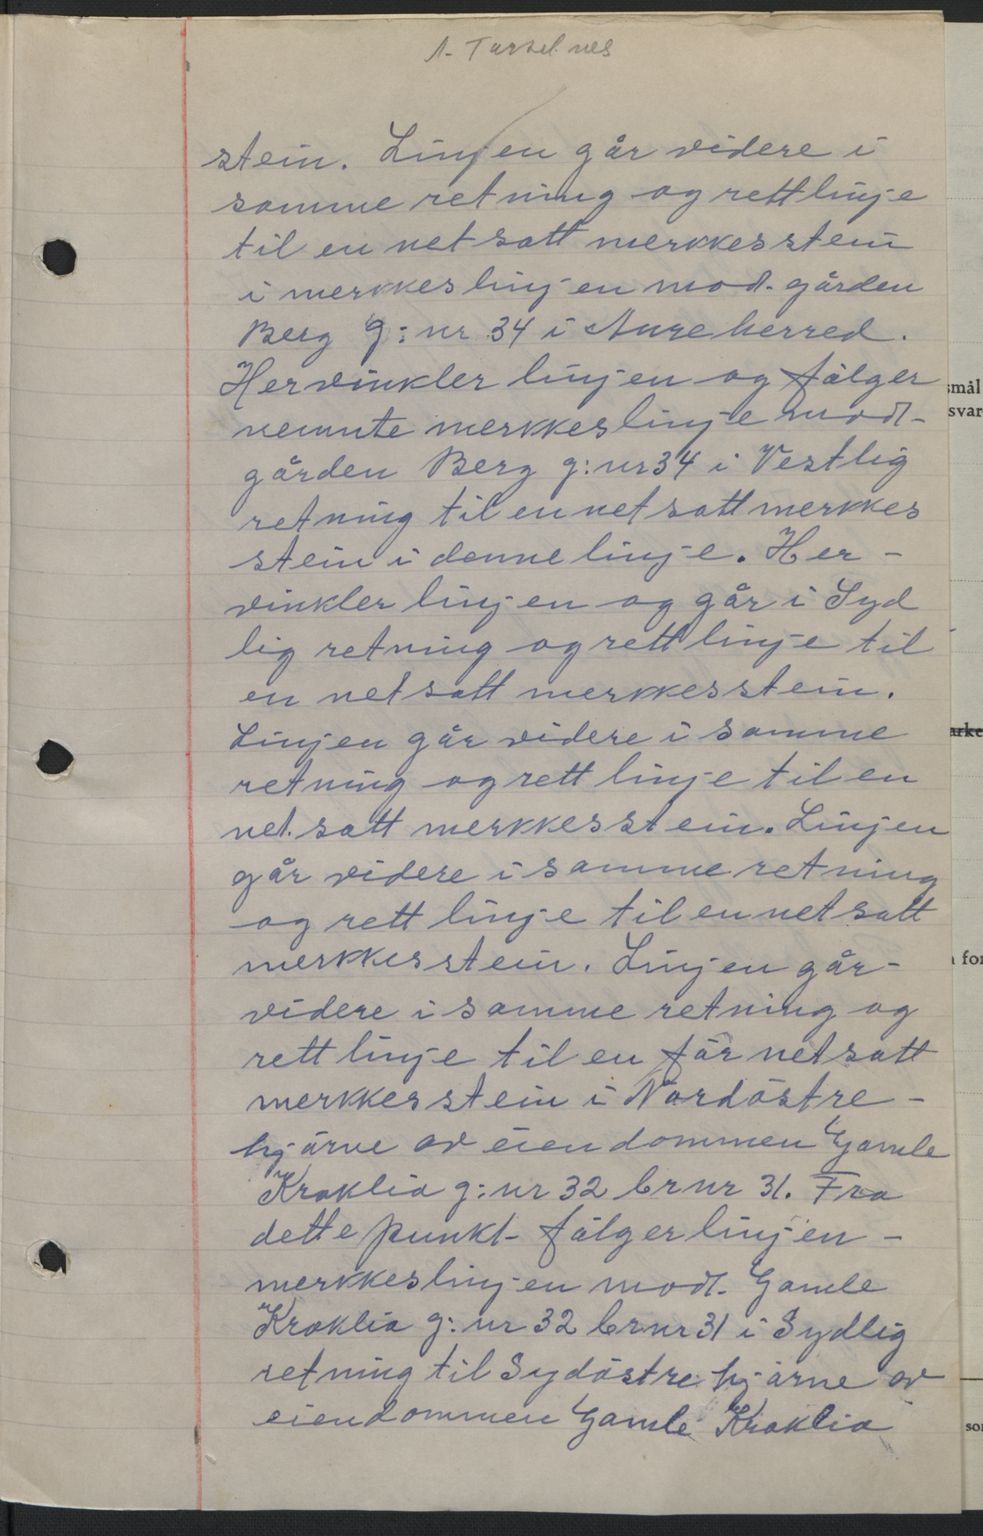 stein. Linjen går videre i
samme retning og rettlinje
til en netsatt merkkesstein
i merkkeslinjen mod. gården
Berg g: nr 34 i Aure herred.
Her vinkler linjen og fålger
nemnte merkkeslinje mod-
gården Berg g: nr 34 i Vestlig
retning til en netsatt merkkes
stein i denne linje. Her -
vinkler linjen og går i Syd
lig retning og rett linje til
en netsatt merkkesstein.
Linjen går videre i samme
retning og rett linje til en
net. satt merkkesstein. Linjen
går videre i samme retning
og rett linje til en netsatt
merkkesstein. Linjen går -
videre i samme retning og
rett linje til en får netsatt
merkkesstein i Nordöstre -
hjörne av eiendommen Gamle
Kroklia g: nr 32 brnr 31. Fra
dette punkt fålger linjen -
merkkeslinjen mod. Gamle
Kroklia g: nr 32 brnr 31 i Sydlig
retning til Sydöstre hjörne av
eiendommen Gamle Kroklia
smål
svar
arke
for
so